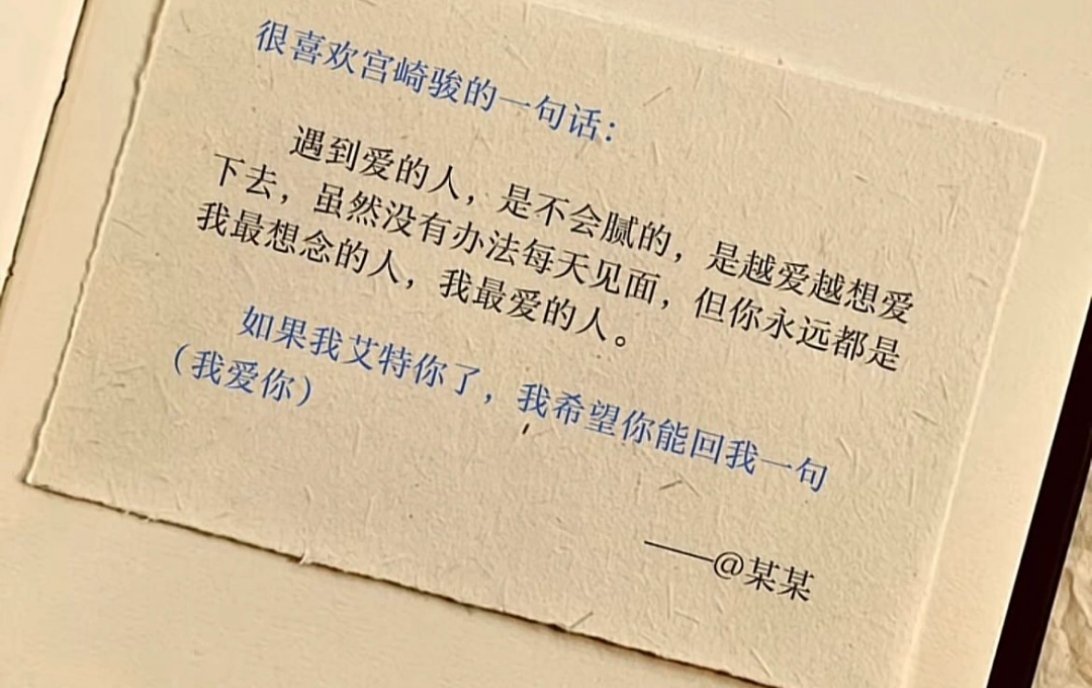 很喜欢宫崎骏的一句话：
遇到爱的人，是不会腻的，是越爱越想爱
下去，虽然没有办法每天见面，但你永远都是
我最想念的人，我最爱的人。
如果我艾特你了，我希望你能回我一句
（我爱你）
——@某某